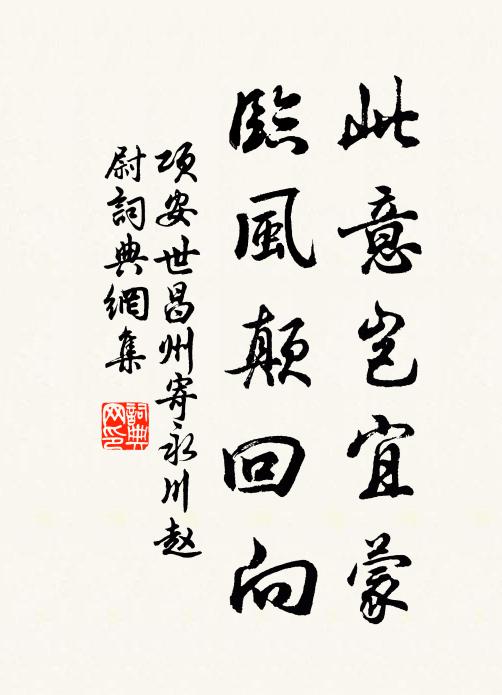 此意岂宜蒙
臨風颠回向
项安世昌州寄永川赵
尉詞典網集
詞典网印